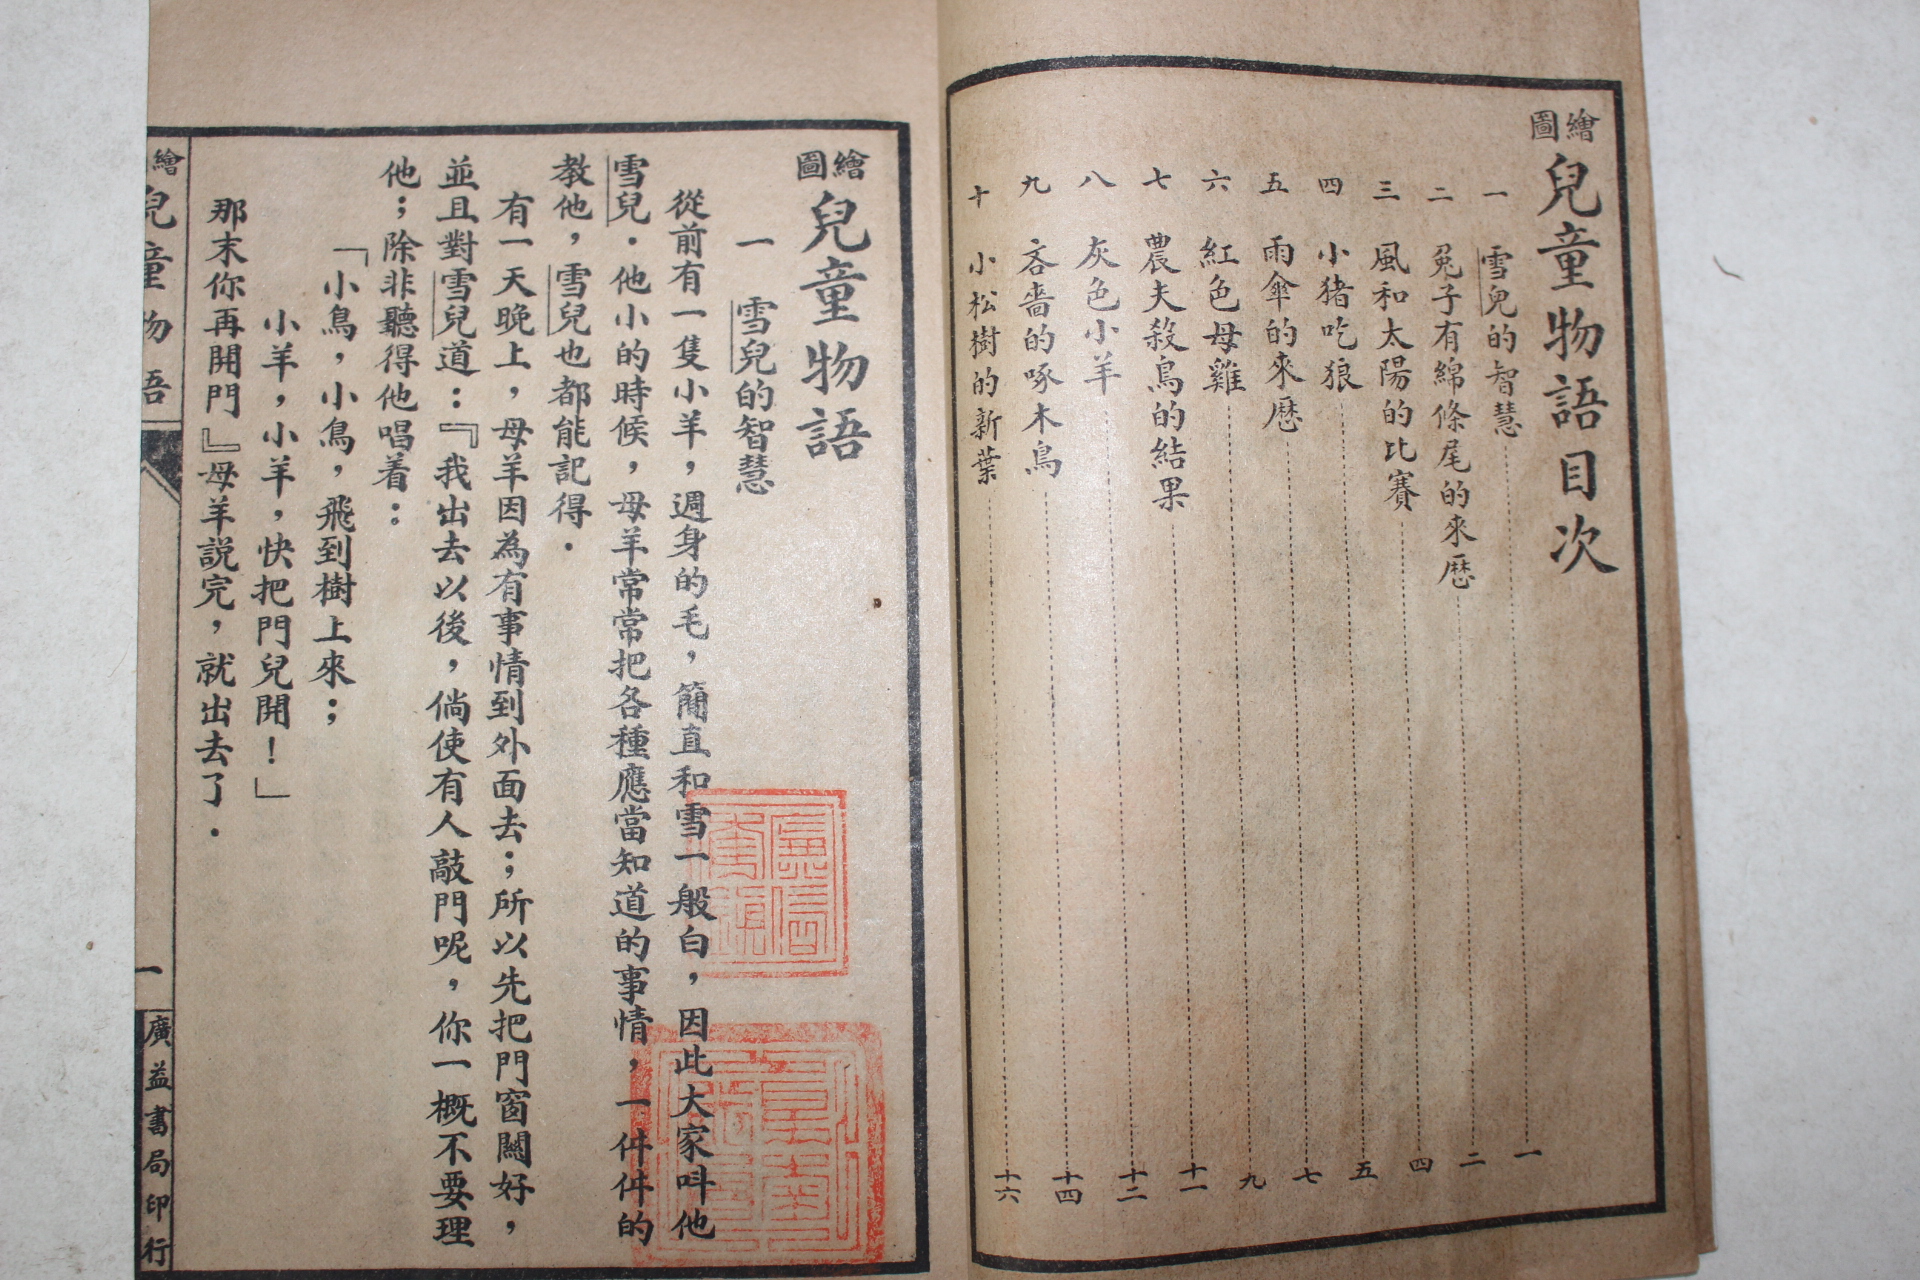 繪圖 兒童物語目次
一 雪兒的智慧 一
二 兔子有綿條尾的來歷 二
三 風和太陽的比賽 四
四 小猪吃狼 五
五 雨傘的來歷 七
六 紅色母雞 九
七 農夫殺鳥的結果 十一
八 灰色小羊 十二
九 吝嗇的啄木鳥 十四
十 小松樹的新葉 十六
繪圖 兒童物語
一 雪兒的智慧
從前有一隻小羊，週身的毛，簡直和雪一般白，因此大家呌他
雪兒．他小的時候，母羊常常把各種應當知道的事情，一件件的
教他，雪兒也都能記得．
有一天晚上，母羊因為有事情到外面去；所以先把門窗關好，
並且對雪兒道：『我出去以後，倘使有人敲門呢，你一概不要理
他；除非聽得他唱着：
「小鳥，小鳥，飛到樹上來；
小羊，小羊，快把門兒開！」
那末你再開門』母羊説完，就出去了．
繪 兒童物語
一
廣益書局印行